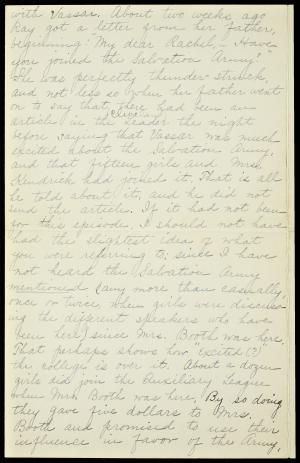 with Vassar. About two weeks ago
Ray got a letter from her father,
beginning "My dear Rachel, - Have
you joined the Salvation Army?"
She was perfectly thunder-struck,
and not less so when her father went
on to say that there had been an
article in the (Cleve) Leader the night
before saying that Vassar was much
excited about the Salvation Army,
and that fifteen girls and Mrs.
Kendrick had joined it. That is all
he told about it, and he did not
send the article. If it had not been
for this episode, I should not have
had the slightest idea of what
you were referring to, since I have
not heard the Salvation Army
mentioned (any more than casually,
once or twice, when girls were discuss-
ing the different speakers who have
been here) since Mrs. Booth was here.
That perhaps shows how "excited (?)"
the college is over it. About a dozen
girls did join the Auxiliary League
when Mrs. Booth was here. By so doing
they gave five dollars to Mrs.
Booth and promised to use their
influence in favor of the Army,